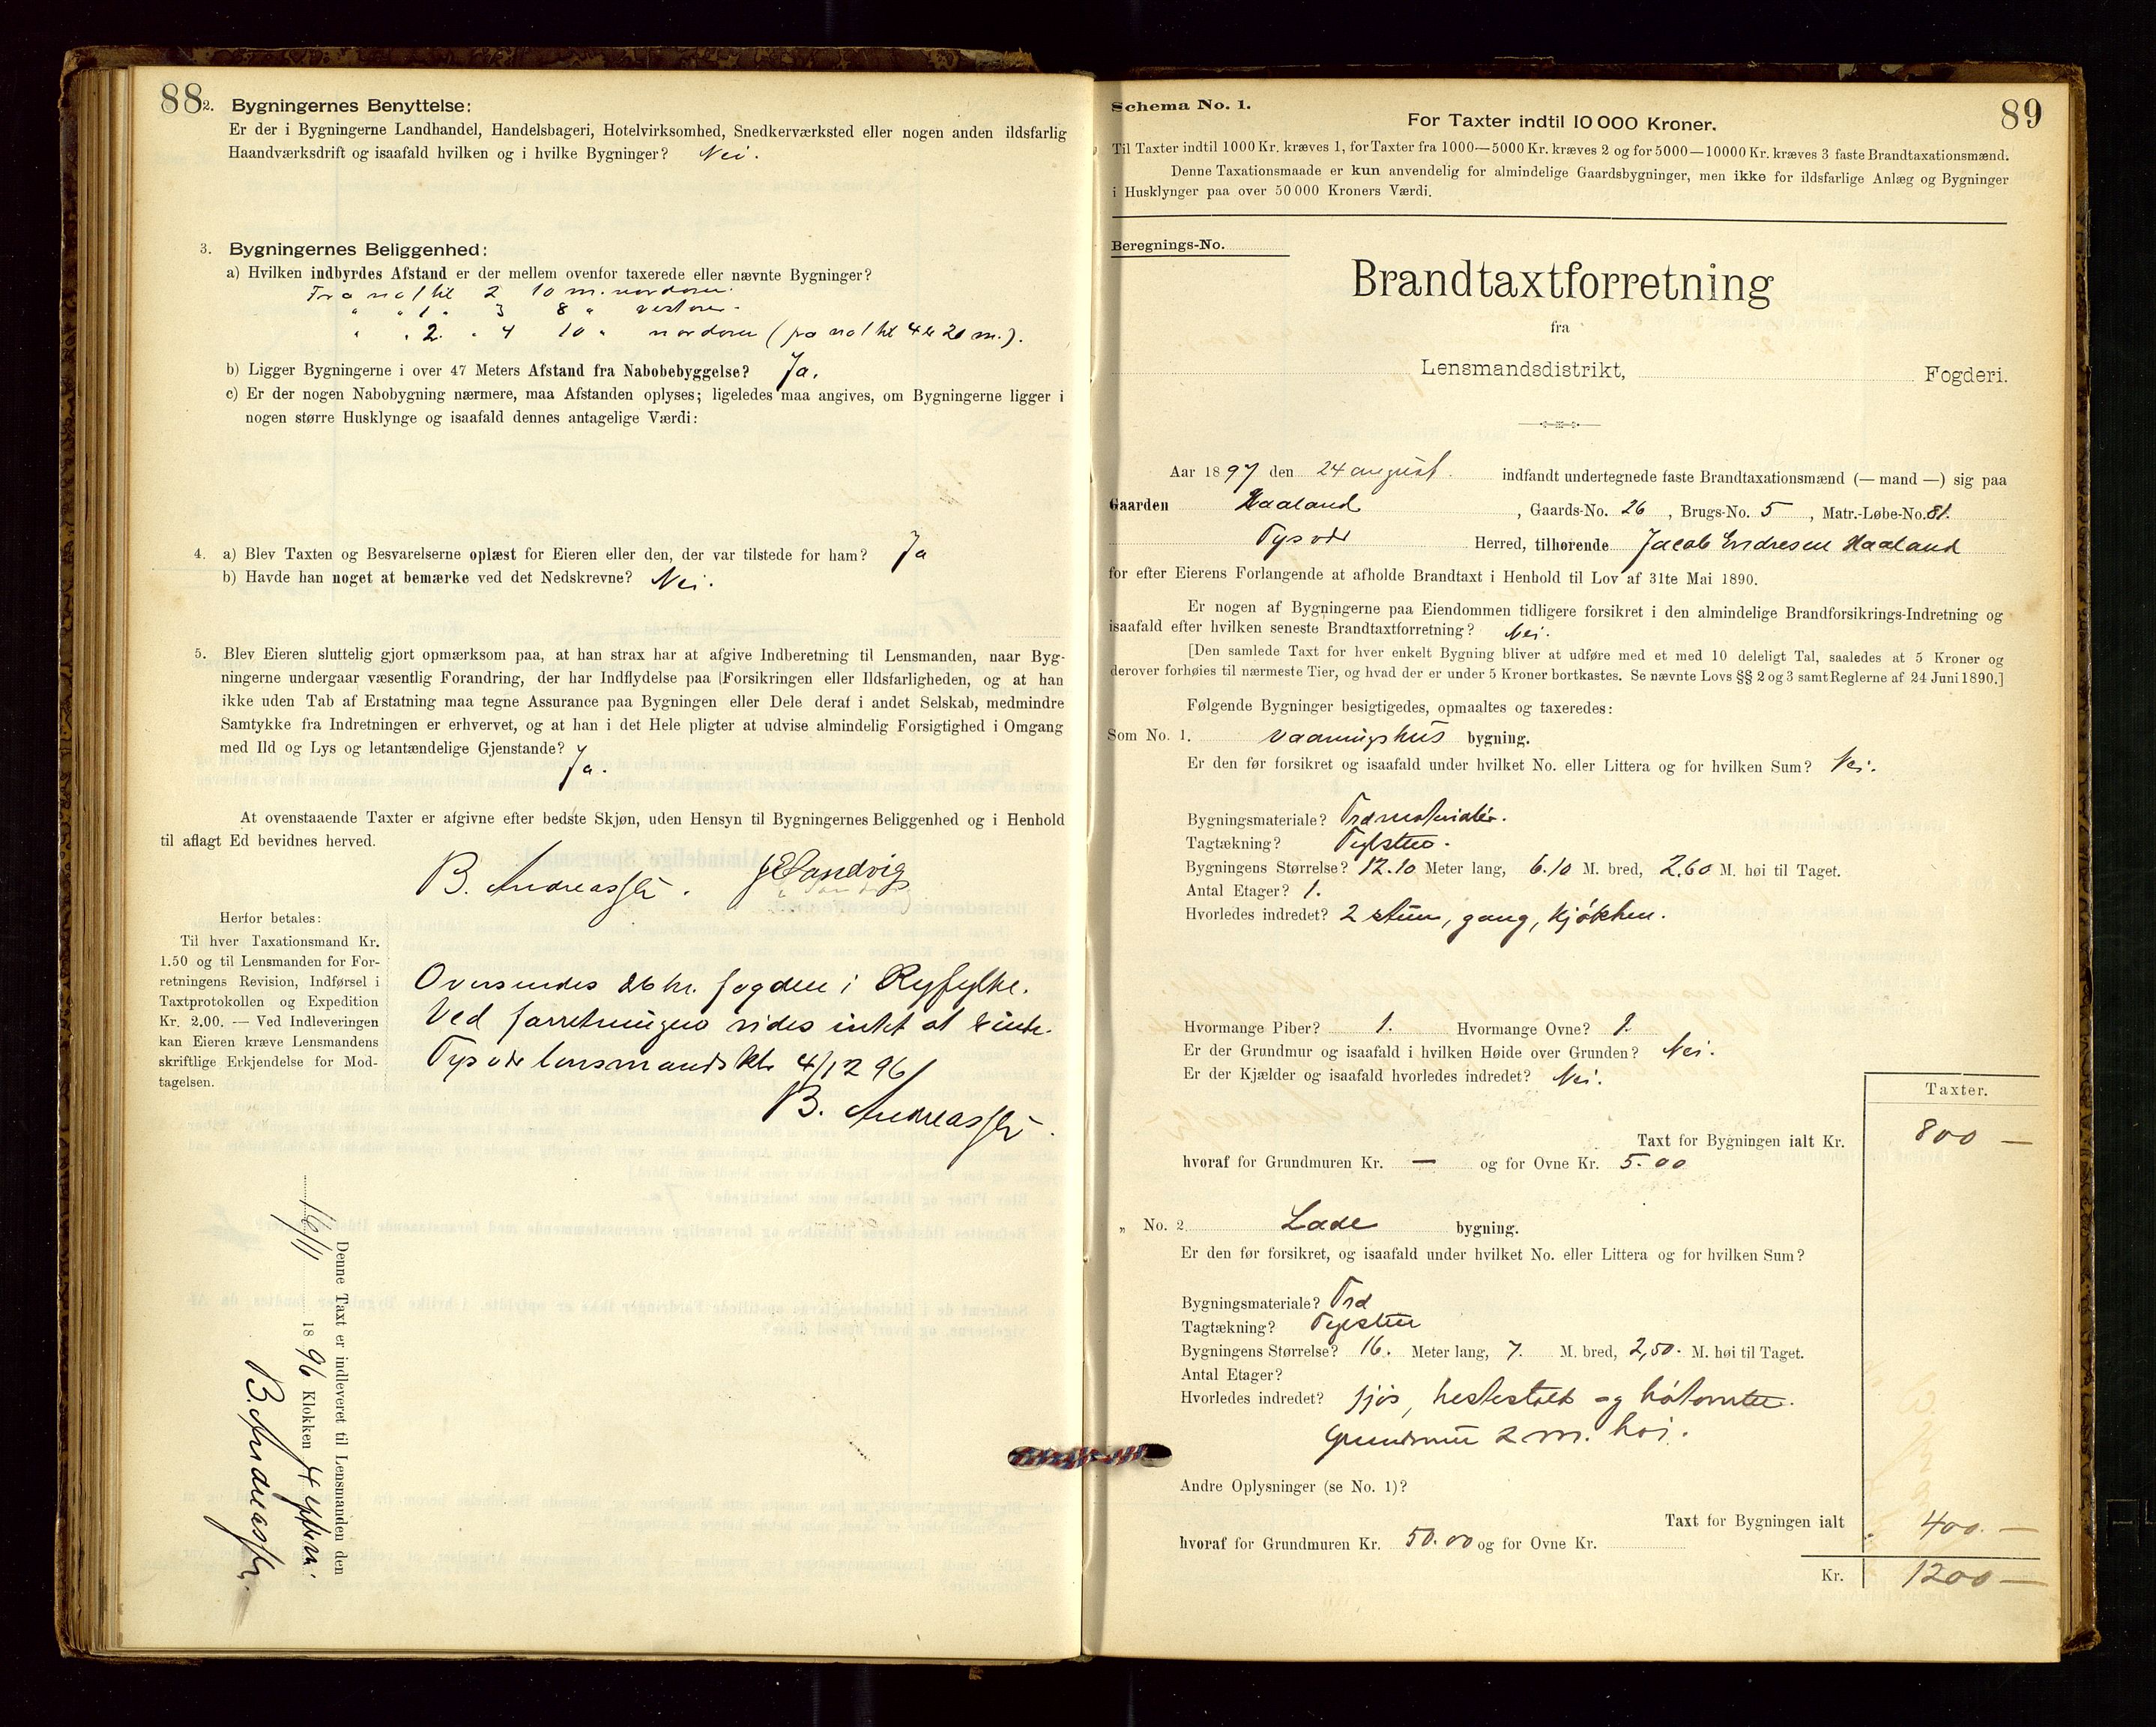 88
2. Bygningernes Benyttelse:
Er der i Bygningerne Landhandel, Handelsbageri, Hotelvirksomhed, Snedkerværksted eller nogen anden ildsfarlig
Haandværksdrift og isaafald hvilken og i hvilke Bygninger? Nei.
3. Bygningernes Beliggenhed:
a) Hvilken indbyrdes Afstand er der mellem ovenfor taxerede eller nævnte Bygninger?
Fra no 1 til 2 10 m. nordover.
" " 1 " 3 8 " vestover.
" " 2. " 4 10 " nordover (fra no 1 til 4 er 20 m.).
b) Ligger Bygningerne i over 47 Meters Afstand fra Nabobebyggelse? Ja.
c) Er der nogen Nabobygning nærmere, maa Afstanden oplyses; ligeledes maa angives, om Bygningerne ligger i
nogen større Husklynge og isaafald dennes antagelige Værdi:
4. a) Blev Taxten og Besvarelserne oplæst for Eieren eller den, der var tilstede for ham? Ja
b) Havde han noget at bemærke ved det Nedskrevne? Nei.
5. Blev Eieren sluttelig gjort opmærksom paa, at han strax har at afgive Indberetning til Lensmanden, naar Byg-
ningerne undergaar væsentlig Forandring, der har Indflydelse paa Forsikringen eller Ildsfarligheden, og at han
ikke uden Tab af Erstatning maa tegne Assurance paa Bygningen eller Dele deraf i andet Selskab, medmindre
Samtykke fra Indretningen er erhvervet, og at han i det Hele pligter at udvise almindelig Forsigtighed i Omgang
med Ild og Lys og letantændelige Gjenstande? Ja.
At ovenstaaende Taxter er afgivne efter bedste Skjøn, uden Hensyn til Bygningernes Beliggenhed og i Henhold
til aflagt Ed bevidnes herved.
B. Andreassen. Sandvig
Herfor betales:
Til hver Taxationsmand Kr.
1.50 og til Lensmanden for For-
retningens Revision, Indførsel i
Taxtprotokollen og Expedition
Kr. 2.00. — Ved Indleveringen
kan Eieren kræve Lensmandens
skriftlige Erkjendelse for Mod-
tagelsen.
Oversendes hr. fogden i Ryfylke.
Ved forretningen vides intet at
Tysvær lensmandskt. 4/12 96
B. Andreassen.
Denne Taxt er indleveret til Lensmanden den
16/11 1896 Klokken 4 efterm.
B. Andreassen.
89
Schema No. 1.
For Taxter indtil 10 000 Kroner.
Til Taxter indtil 1000 Kr. kræves 1, for Taxter fra 1000—5000 Kr. kræves 2 og for 5000—10000 Kr. kræves 3 faste Brandtaxationsmænd.
Denne Taxationsmaade er kun anvendelig for almindelige Gaardsbygninger, men ikke for ildsfarlige Anlæg og Bygninger
i Husklynger paa over 50 000 Kroners Værdi.
Beregnings-No.
Brandtaxtforretning
fra
Lensmandsdistrikt, Fogderi.
Aar 1897 den 24 august. indfandt undertegnede faste Brandtaxationsmænd (— mand —) sig paa
Gaarden Haaland, Gaards-No. 26, Brugs-No. 5, Matr.-Løbe-No. 81.
Tysvær Herred, tilhørende Jacob Endresen Haaland
for efter Eierens Forlangende at afholde Brandtaxt i Henhold til Lov af 31te Mai 1890.
Er nogen af Bygningerne paa Eiendommen tidligere forsikret i den almindelige Brandforsikrings-Indretning og
isaafald efter hvilken seneste Brandtaxtforretning? Nei.
[Den samlede Taxt for hver enkelt Bygning bliver at udføre med et med 10 deleligt Tal, saaledes at 5 Kroner og
derover forhøies til nærmeste Tier, og hvad der er under 5 Kroner bortkastes. Se nævnte Lovs §§ 2 og 3 samt Reglerne af 24 Juni 1890.]
Følgende Bygninger besigtigedes, opmaaltes og taxeredes:
Som No. 1. Vaaningshus bygning.
Er den før forsikret og isaafald under hvilket No. eller Littera og for hvilken Sum? Nei.
Bygningsmateriale? Træmaterialer.
Tagtækning? Teglsten.
Bygningens Størrelse? 12.10 Meter lang, 6.10 M. bred, 2,60 M. høi til Taget.
Antal Etager? 1.
Hvorledes indredet? 2 stuer, gang, kjøkken.
Hvormange Piber? 1. Hvormange Ovne? 1.
Er der Grundmur og isaafald i hvilken Høide over Grunden? Nei.
Er der Kjælder og isaafald hvorledes indredet? Nei.
Taxter.
Taxt for Bygningen ialt Kr. 800 —
hvoraf for Grundmuren Kr. — og for Ovne Kr. 5.00
" No. 2. Lade bygning.
Er den før forsikret, og isaafald under hvilket No. eller Littera og for hvilken Sum?
Bygningsmateriale? Træ
Tagtækning? Teglsten
Bygningens Størrelse? 16. Meter lang, 7. M. bred, 2,50. M. høi til Taget.
Antal Etager?
Hvorledes indredet? fjøs, hestestald og
Grundmur 2 m. høi.
Andre Oplysninger (se No. 1)?
Taxt for Bygningen ialt 400. —
hvoraf for Grundmuren Kr. 50.00 og for Ovne Kr.
Kr. 1200 —